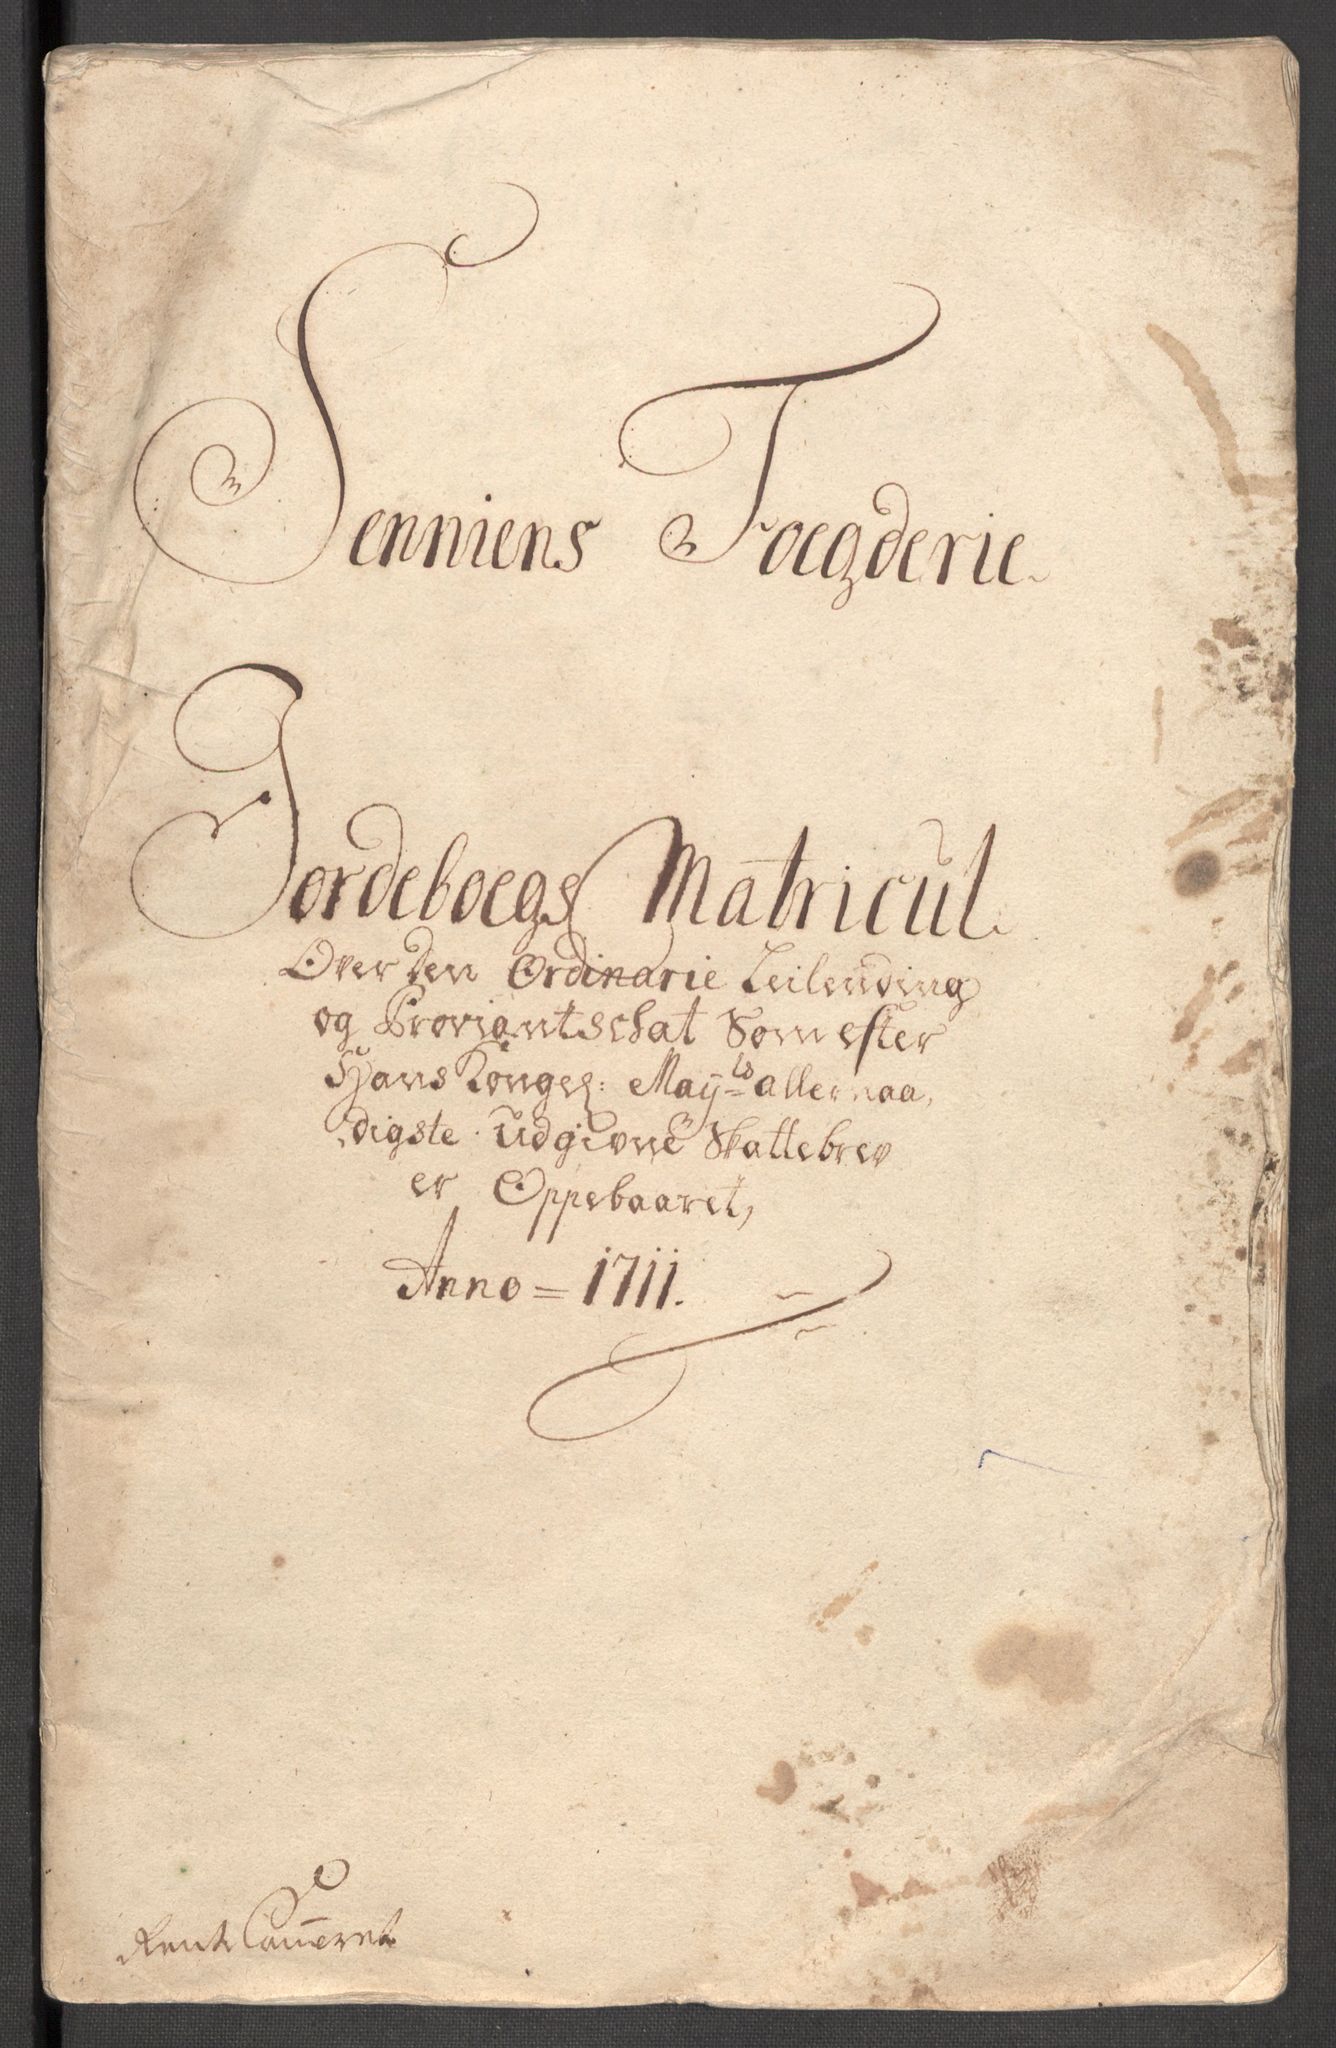 Senniens Foegderie
Jordeboegs Matricul
Over den Ordinarie Leilending
og Proviantschat Som efter
Hans Konges: May:ts allernaa,
digste udgivne Skattebrev
er Oppebaaret,
Anno = 1711.
Rente Cammeret